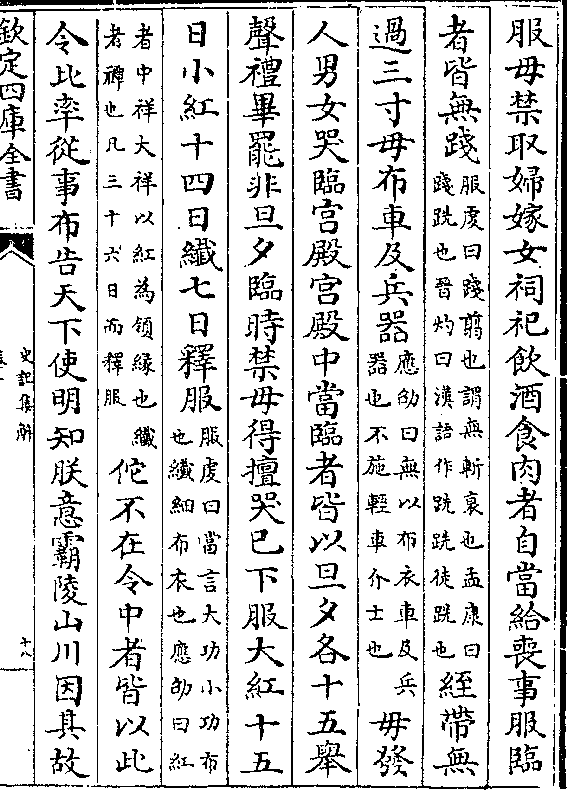 服毋禁取婦嫁女祠祀飲酒食肉者自當給喪事服臨
者皆無踐服虔曰踐翦也謂無斬衰也孟康曰踐跣也晉灼曰漢語作跣跣徒跣也絰帶無
過三寸毋布車及兵器應劭曰無以布衣車及兵器也不施輕車介士也毋發
人男女哭臨宫殿宫殿中當臨者皆以旦夕各十五舉
聲禮畢罷非旦夕臨時禁毋得擅哭已下服大紅十五
日小紅十四日纖七日釋服服虔曰當言大功小功布也纖細布衣也應劭曰紅
者中祥大祥以紅為領緣也纖者禫也凡三十六日而釋服佗不在令中者皆以此
令比率從事布告天下使明知朕意霸陵山川因其故
欽定四庫全書
史記集解
十八